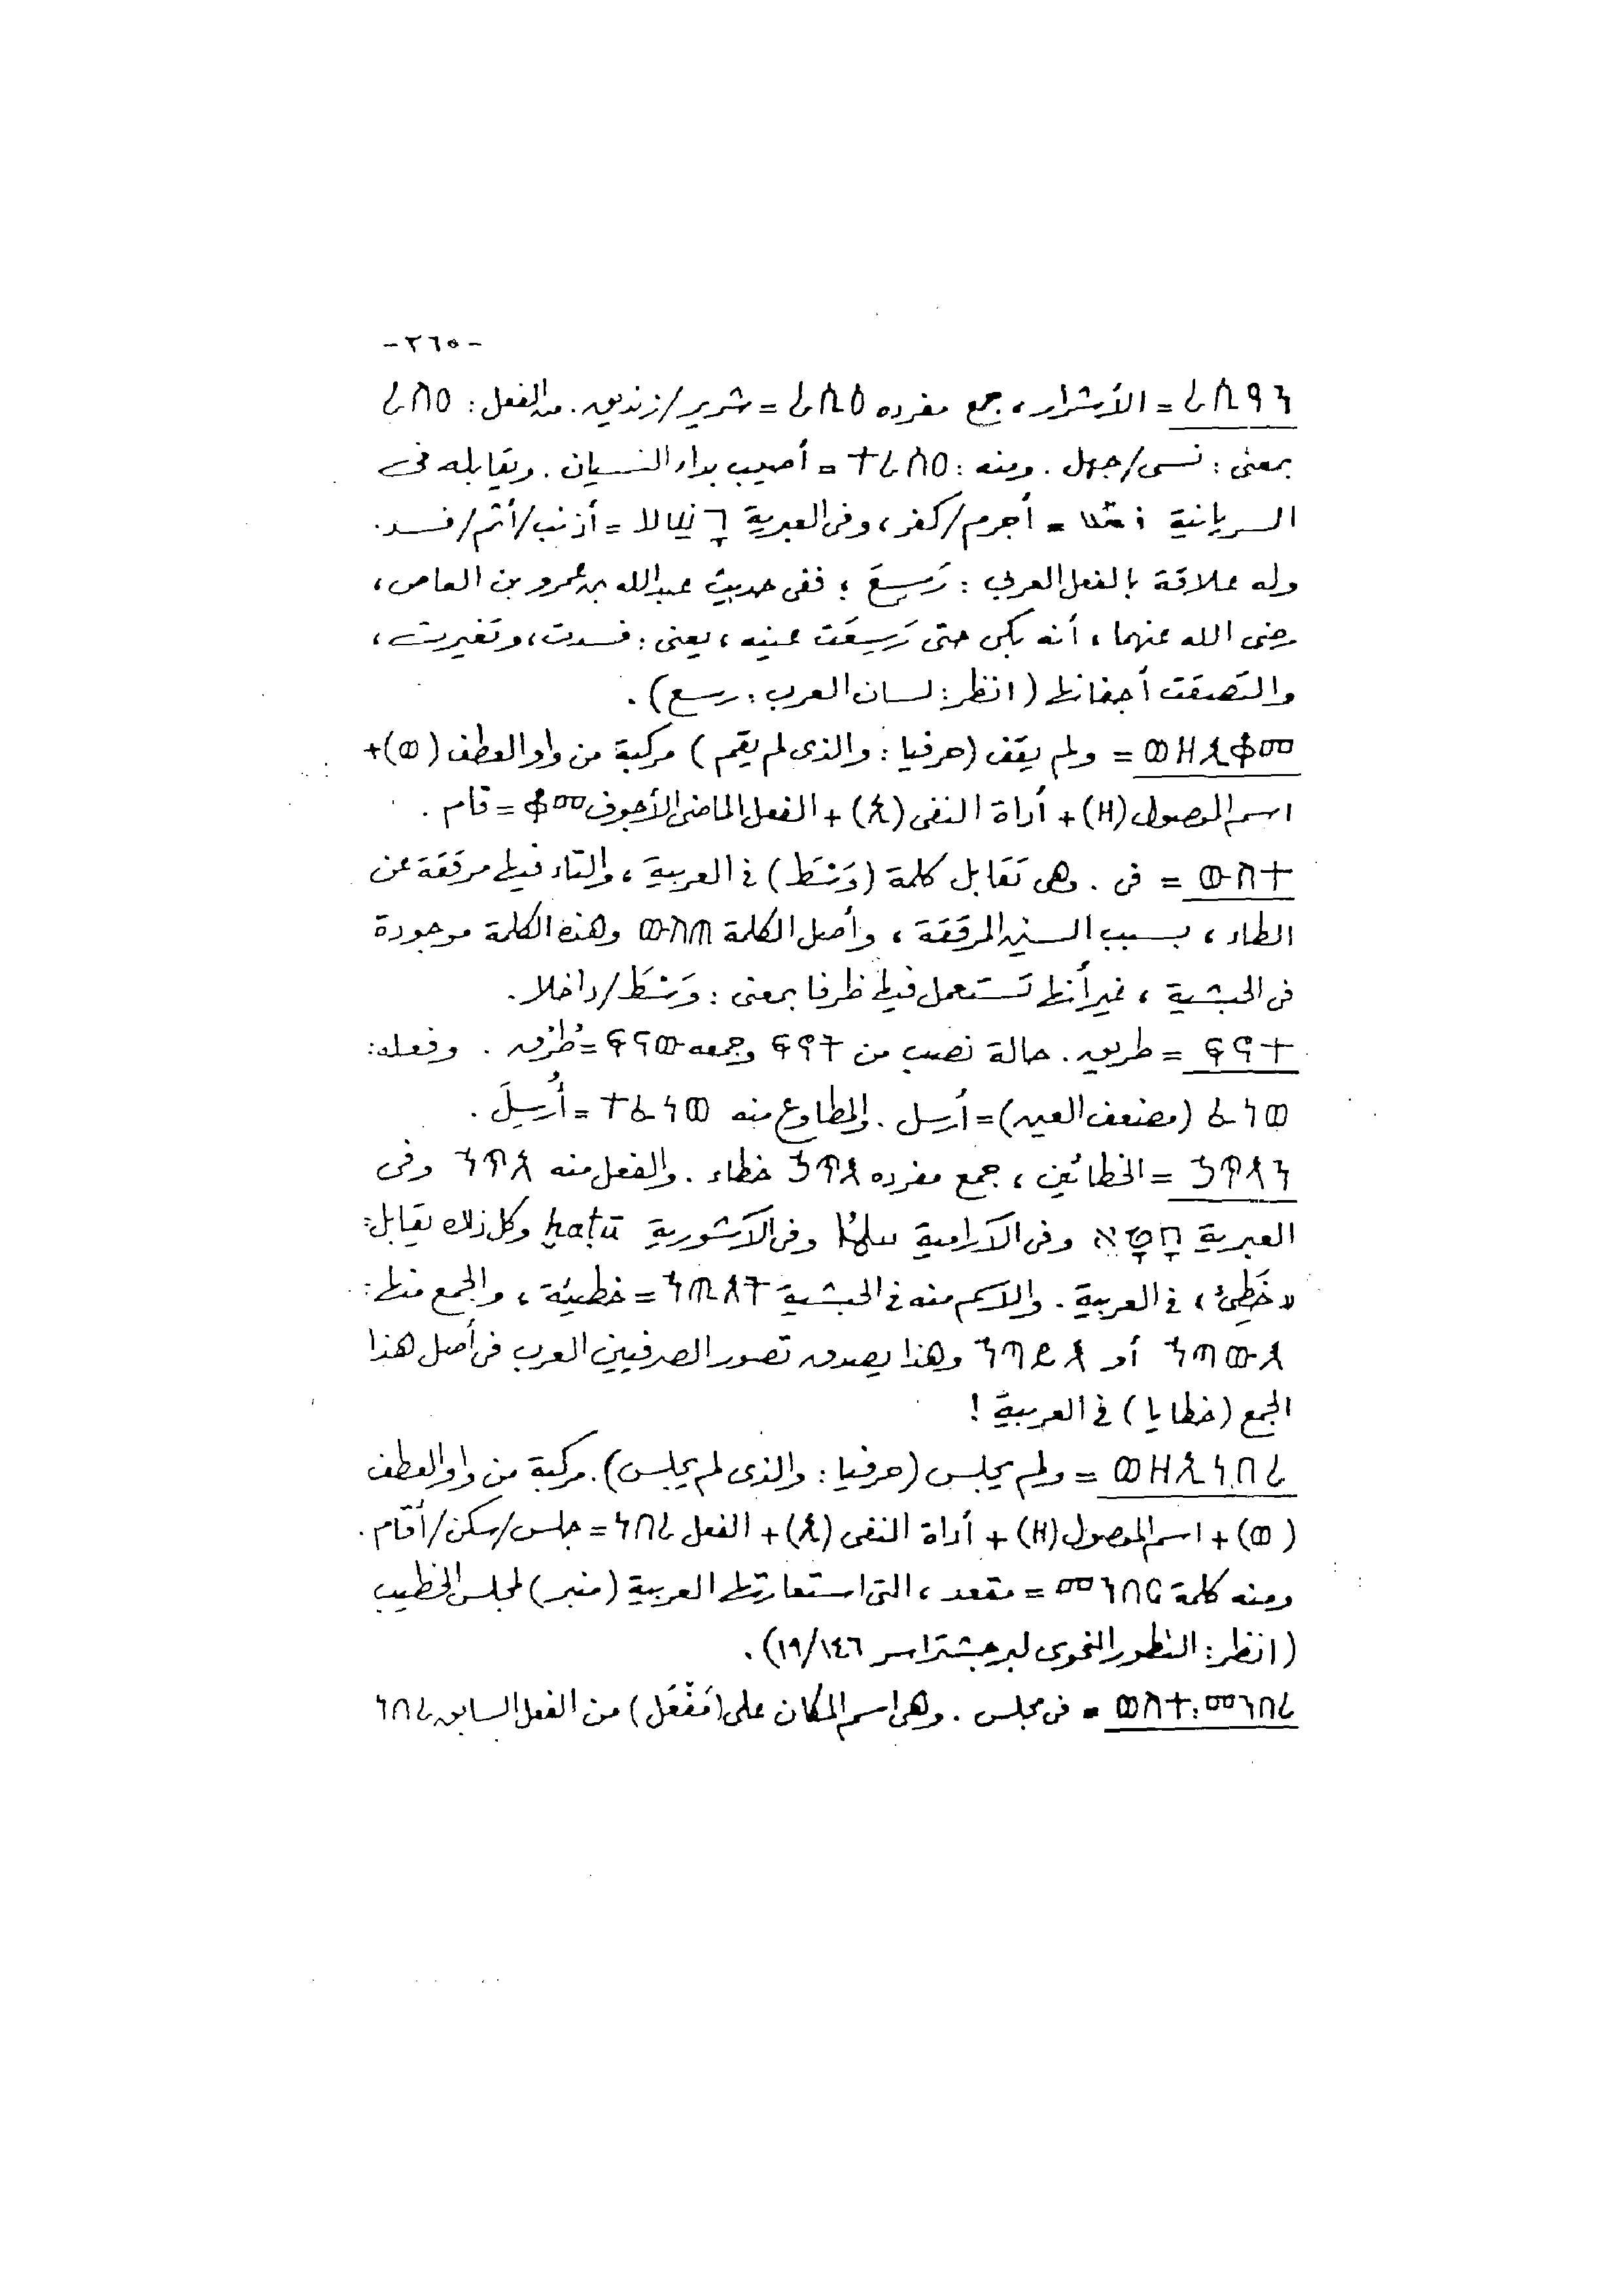 -٢٦٥-
ረሲዓን = الأشرار، جمع مفرده ረሲዕ = شرير/زنديق. من الفعل: ረስዐ
بمعنى: نسى/جهل. ومنه: ተረስዐ = أصيب بداء النسيان. ويقابله فى
السريانية = أجرم/كفر، وفى العبرية = أذنب/أثم/فسد.
وله علاقة بالفعل العربى: رَسِعَ؛ ففى حديث عبدالله بن عمرو بن العاص،
رضى الله عنهما، أنه بكى حتى رَسِعَت عينه، يعنى: فسدت، وتغيرت،
والتصقت أجفانها (انظر: لسان العرب: رسع).
ወዘኢቆመ = ولم يقف (حرفيا: والذى لم يقم) مركبة من واو العطف (ወ)+
اسم الموصول (ዘ) + أداة النفى (ኢ) + الفعل الماضى الأجوف ቆመ = قام.
ውስተ = فى. وهى تقابل كلمة (وَسْطَ) فى العربية، والتاء فيها مرققة عن
الطاء، بسبب السين المرققة، وأصل الكلمة ውስጠ وهذه الكلمة موجودة
فى الحبشية، غير أنها تستعمل فيها ظرفا بمعنى: وَسْطَ/داخلا.
ፍኖተ = طريق. حالة نصب من ፍኖት وجمعه ፍናው = طُرُق. وفعله:
ፈነወ (مضعف العين) = أرسل. والمطاوع منه ተፈነወ = أُرسِلَ.
ኃጥኣን = الخطائين، جمع مفرده ኃጥእ خطاء. والفعل منه ኀጥአ وفى
العبرية חָטָא وفى الآرامية وفى الآشورية ḫatū وكل ذلك يقابل:
«خَطِئَ» فى العربية. والاسم منه فى الحبشية ኀጢአት = خطيئة، والجمع منها:
ኀጣውእ أو ኀጣይእ وهذا يصدق تصور الصرفيين العرب فى أصل هذا
الجمع (خطايا) فى العربية!
ወዘኢነበረ = ولم يجلس (حرفيا: والذى لم يجلس). مركبة من واو العطف
(ወ) + اسم الموصول (ዘ) + أداة النفى (ኢ) + الفعل ነበረ = جلس/سكن/أقام.
ومنه كلمة መንበር = مقعد، التى استعارتها العربية (منبر) لمجلس الخطيب
(انظر: التطور النحوى لبرجشتراسر ١٩/١٤٦).
ወስተ፡መንበረ = فى مجلس. وهى اسم المكان على (مَفْعَل) من الفعل السابق ነበረ